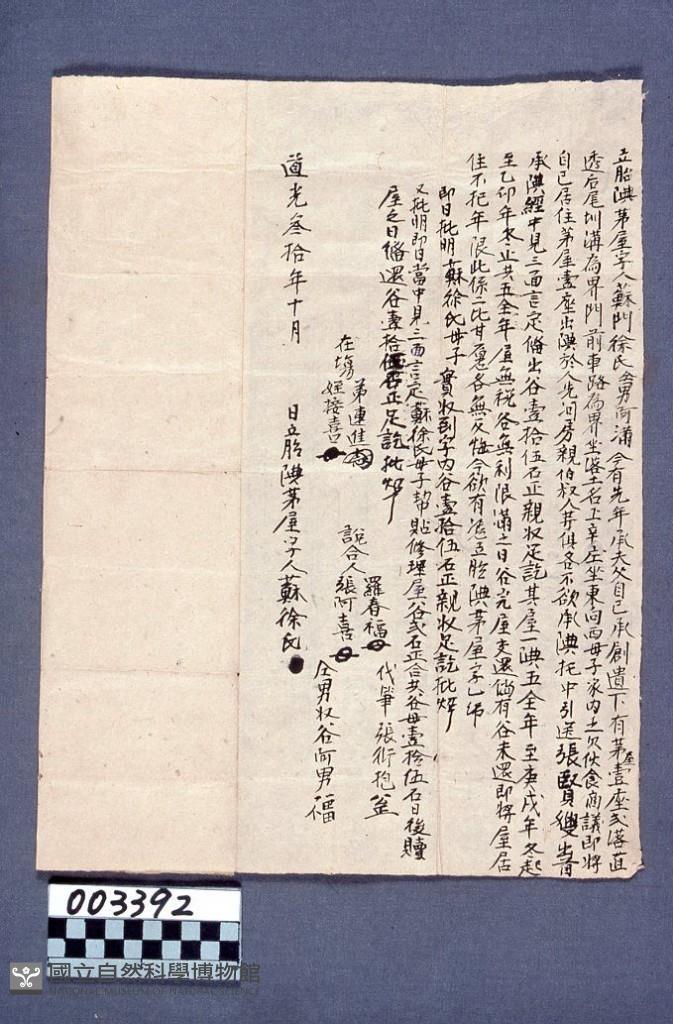 立胎典茅屋字人蘇門徐氏仝男阿滿今有先年承夫父自己承創遺下有茅屋壹座式落直
透后尾圳溝為界門前車路為界坐落土名上辛庄坐東向西母子家內土欠伙食商議即將
自己居住茅屋壹座出典於人先問房親伯叔人等俱各不欲承典托中引送張賢
承典經中見三面言定備出谷壹拾伍石正親收足訖其屋一典五全年至庚戌年冬起
至乙卯年冬止共五全年屋無稅谷無利限滿之日谷完屋交還倘有谷未還即將屋居
住不把年限此係二比甘愿各無反悔今欲有憑立胎典茅屋字乙帋
即日批明蘇徐氏母子實收到字內谷壹拾伍石正親收足訖批炤
又批明即日當中見三面言定蘇徐氏母子幫貼修理屋谷式石正合共谷壹拾伍石日後贖
屋之日備還谷壹拾伍石正足訖批炤
代筆張衍抱
羅春福
說合人張阿喜
在塲弟連進
姪接喜
仝男收谷阿男福
道光叁拾年十月 日立胎典茅屋字人蘇徐氏
003392
國立自然科學博物館
NATIONAL MUSEUM OF NATURAL SCIENCE